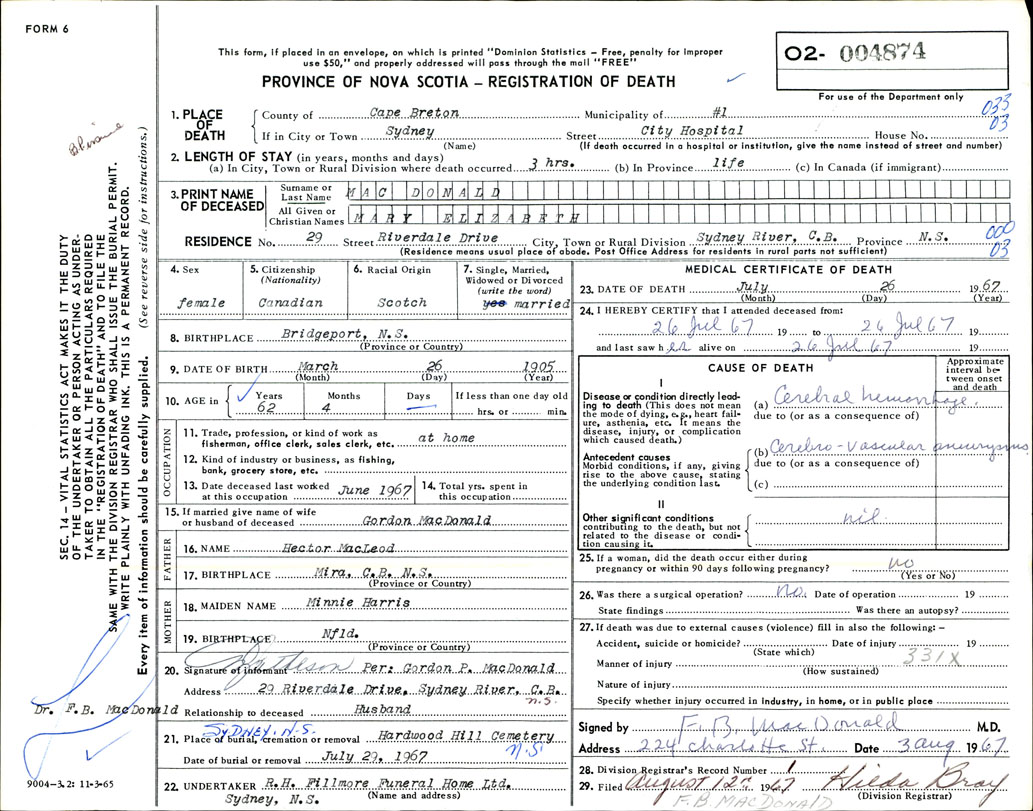 FORM 6
This form, if placed in an envelope, on which is printed "Dominion Statistics – Free, penalty for improper
use $50," and properly addressed will pass through the mail "FREE"
O2- 004874
PROVINCE OF NOVA SCOTIA – REGISTRATION OF DEATH
For use of the Department only
1. PLACE OF DEATH County of Cape Breton Municipality of #1 033
If in City or Town Sydney Street City Hospital House No. 03
(Name) (If death occurred in a hospital or institution, give the name instead of street and number)
2. LENGTH OF STAY (in years, months and days)
(a) In City, Town or Rural Division where death occurred 3 hrs. (b) In Province life (c) In Canada (if immigrant)
3. PRINT NAME OF DECEASED Surname or Last Name MAC DONALD
All Given or Christian Names MARY ELIZABETH
RESIDENCE No. 29 Street Riverdale Drive City, Town or Rural Division Sydney River, C.B. Province N.S. 000
(Residence means usual place of abode. Post Office Address for residents in rural parts not sufficient) 03
4. Sex
female
5. Citizenship
(Nationality)
Canadian
6. Racial Origin
Scotch
7. Single, Married,
Widowed or Divorced
(write the word)
yes married
8. BIRTHPLACE Bridgeport, N.S.
(Province or Country)
9. DATE OF BIRTH March 26 1905
(Month) (Day) (Year)
10. AGE in Years Months Days If less than one day old
62 4 — hrs. or min.
OCCUPATION
11. Trade, profession, or kind of work as
fisherman, office clerk, sales clerk, etc. at home
12. Kind of industry or business, as fishing,
bank, grocery store, etc.
13. Date deceased last worked
at this occupation June 1967
14. Total yrs. spent in
this occupation
15. If married give name of wife
or husband of deceased Gordon MacDonald
FATHER
16. NAME Hector MacLeod
17. BIRTHPLACE Mira, C.B. N.S.
(Province or Country)
MOTHER
18. MAIDEN NAME Minnie Harris
19. BIRTHPLACE Nfld.
(Province or Country)
20. Signature of informant Per: Gordon P. MacDonald
Address 29 Riverdale Drive, Sydney River, C.B.
N.S.
Relationship to deceased Husband
SYDNEY. N.S.
21. Place of burial, cremation or removal Hardwood Hill Cemetery
N.S
Date of burial or removal July 29, 1967
22. UNDERTAKER R.H. Fillmore Funeral Home Ltd.
Sydney, N.S. (Name and address)
MEDICAL CERTIFICATE OF DEATH
23. DATE OF DEATH July 26 1967
(Month) (Day) (Year)
24. I HEREBY CERTIFY that I attended deceased from:
26 Jul 67 19 to 26 Jul 67 19
and last saw her alive on 26 Jul 67 19
CAUSE OF DEATH
Approximate
interval be-
tween onset
and death
I
Disease or condition directly lead-
ing to death (This does not mean
the mode of dying, e.g., heart fail-
ure, asthenia, etc. It means the
disease, injury, or complication
which caused death.)
(a) Cerebral hemorrhage.
due to (or as a consequence of)
Antecedent causes
Morbid conditions, if any, giving
rise to the above cause, stating
the underlying condition last.
(b) Cerebro-vascular aneurysm
due to (or as a consequence of)
(c)
II
Other significant conditions
contributing to the death, but not
related to the disease or condi-
tion causing it.
nil.
25. If a woman, did the death occur either during
pregnancy or within 90 days following pregnancy? no
(Yes or No)
26. Was there a surgical operation? no. Date of operation 19
State findings Was there an autopsy?
27. If death was due to external causes (violence) fill in also the following: –
Accident, suicide or homicide? Date of injury 19
(State which) 331X
Manner of injury
(How sustained)
Nature of injury
Specify whether injury occurred in Industry, in home, or in public place
Signed by F. B. MacDonald M.D.
Address 224 Charlotte St. Date 3 Aug 1967
28. Division Registrar's Record Number 1
29. Filed August 12 1967 Hilda Bray
(Division Registrar)
F.B. MACDONALD
SEC. 14 – VITAL STATISTICS ACT MAKES IT THE DUTY
OF THE UNDERTAKER OR PERSON ACTING AS UNDER-
TAKER TO OBTAIN ALL THE PARTICULARS REQUIRED
IN THE "REGISTRATION OF DEATH" AND TO FILE THE
SAME WITH THE DIVISION REGISTRAR WHO SHALL ISSUE THE BURIAL PERMIT.
WRITE PLAINLY WITH UNFADING INK. THIS IS A PERMANENT RECORD.
Every item of information should be carefully supplied. (See reverse side for instructions.)
Dr. F.B. MacDonald
9004-3.2: 11-3-65